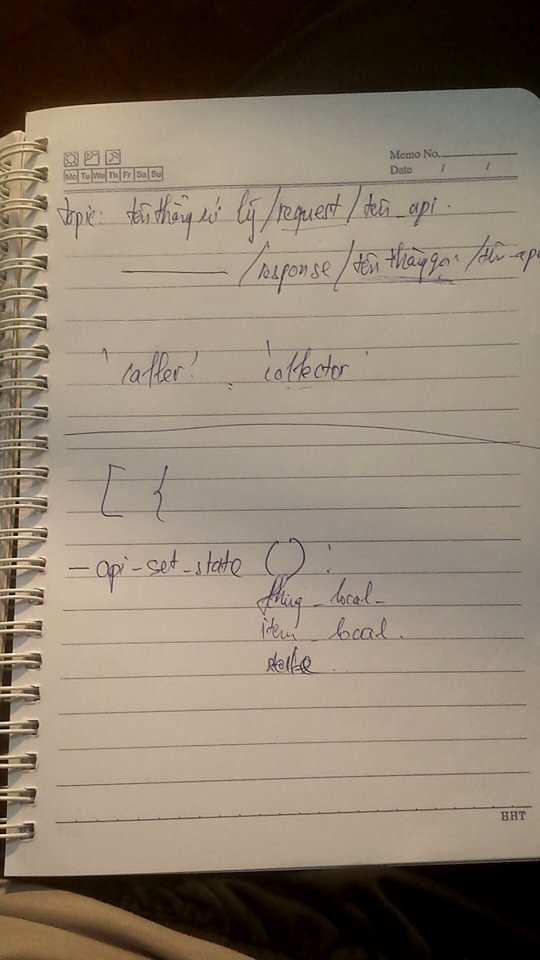 Memo No.
Mo Tu We Th Fr Sa Su
Date / /
topic: tên thằng xử lý /request / tên_api.
/response / tên thằng gọi / tên_api
'caller' : 'collector'
[ {
- api-set-state () :
thing_local_
item_local.
state
HHT